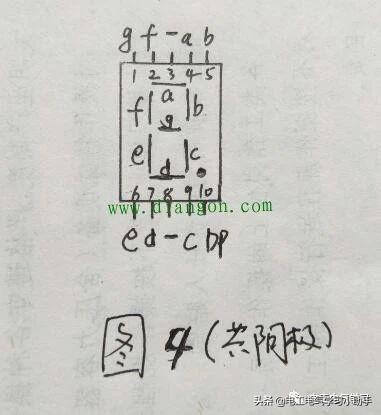 g f - a b
1 2 3 4 5
a
f b
g
e c
d
6 7 8 9 10
www.diangon.com
e d - c DP
图 4 (共阴极)